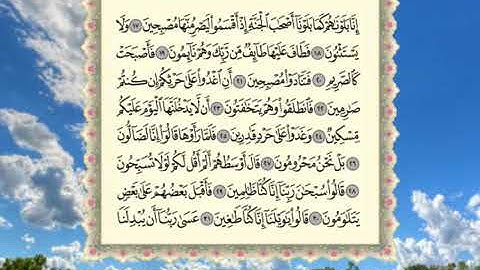 إِنَّا بَلَوْنَٰهُمْ كَمَا بَلَوْنَآ أَصْحَٰبَ ٱلْجَنَّةِ إِذْ أَقْسَمُوا۟ لَيَصْرِمُنَّهَا مُصْبِحِينَ ١٧ وَلَا
يَسْتَثْنُونَ ١٨ فَطَافَ عَلَيْهَا طَآئِفٌ مِّن رَّبِّكَ وَهُمْ نَآئِمُونَ ١٩ فَأَصْبَحَتْ
كَٱلصَّرِيمِ ٢٠ فَتَنَادَوْا۟ مُصْبِحِينَ ٢١ أَنِ ٱغْدُوا۟ عَلَىٰ حَرْثِكُمْ إِن كُنتُمْ
صَٰرِمِينَ ٢٢ فَٱنطَلَقُوا۟ وَهُمْ يَتَخَٰفَتُونَ ٢٣ أَن لَّا يَدْخُلَنَّهَا ٱلْيَوْمَ عَلَيْكُم
مِّسْكِينٌ ٢٤ وَغَدَوْا۟ عَلَىٰ حَرْدٍ قَٰدِرِينَ ٢٥ فَلَمَّا رَأَوْهَا قَالُوٓا۟ إِنَّا لَضَآلُّونَ
٢٦ بَلْ نَحْنُ مَحْرُومُونَ ٢٧ قَالَ أَوْسَطُهُمْ أَلَمْ أَقُل لَّكُمْ لَوْلَا تُسَبِّحُونَ
٢٨ قَالُوا۟ سُبْحَٰنَ رَبِّنَآ إِنَّا كُنَّا ظَٰلِمِينَ ٢٩ فَأَقْبَلَ بَعْضُهُمْ عَلَىٰ بَعْضٍ
يَتَلَٰوَمُونَ ٣٠ قَالُوا۟ يَٰوَيْلَنَآ إِنَّا كُنَّا طَٰغِينَ ٣١ عَسَىٰ رَبُّنَآ أَن يُبْدِلَنَا